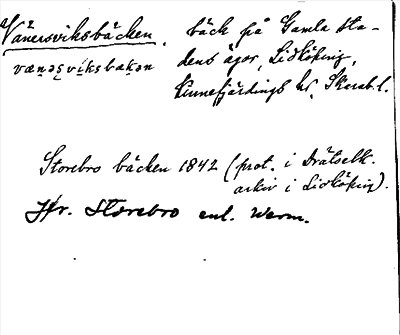 Vänersviksbäcken, bäck på Gamla sta-
vænəʂvíksbækən dens ägor, Lidköping,
Kinnefjärdings hd, Skarab. l.
Storebro bäcken 1842 (prot. i Drätselk.
arkiv i Lidköping).
Jfr. Storebro enl. Werm.